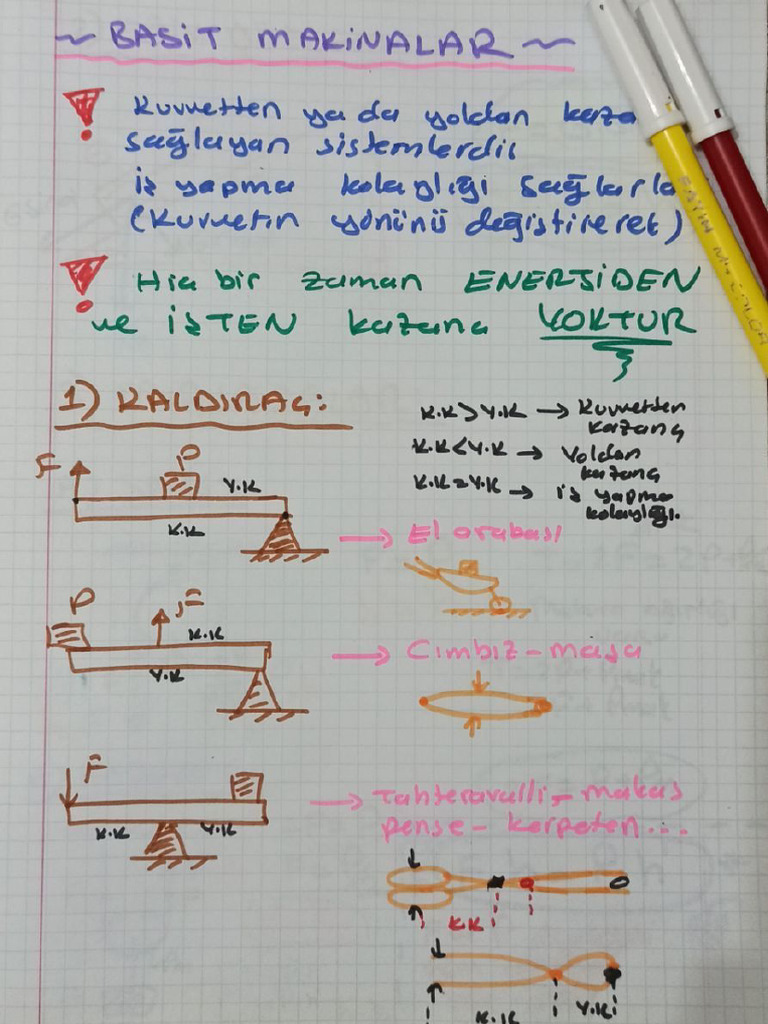 ~ BASİT MAKİNALAR ~
! Kuvvetten ya da yoldan kaza
sağlayan sistemlerdir
iş yapma kolaylığı sağlarla
(Kuvvetin yönünü değiştirerek)
! Hiç bir zaman ENERJİDEN
ve İŞTEN kazanç YOKTUR
1) KALDIRAÇ:
K.K > Y.K → Kuvvetten
kazanç
K.K < Y.K → Yoldan
kazanç
K.K = Y.K → iş yapma
kolaylığı.
F P Y.K
K.K
→ El arabası
P F K.K
Y.K
→ Cımbız - maşa
F
K.K Y.K
→ Tahteravalli - makas
pense - kerpeten...
K.K
K.K Y.K